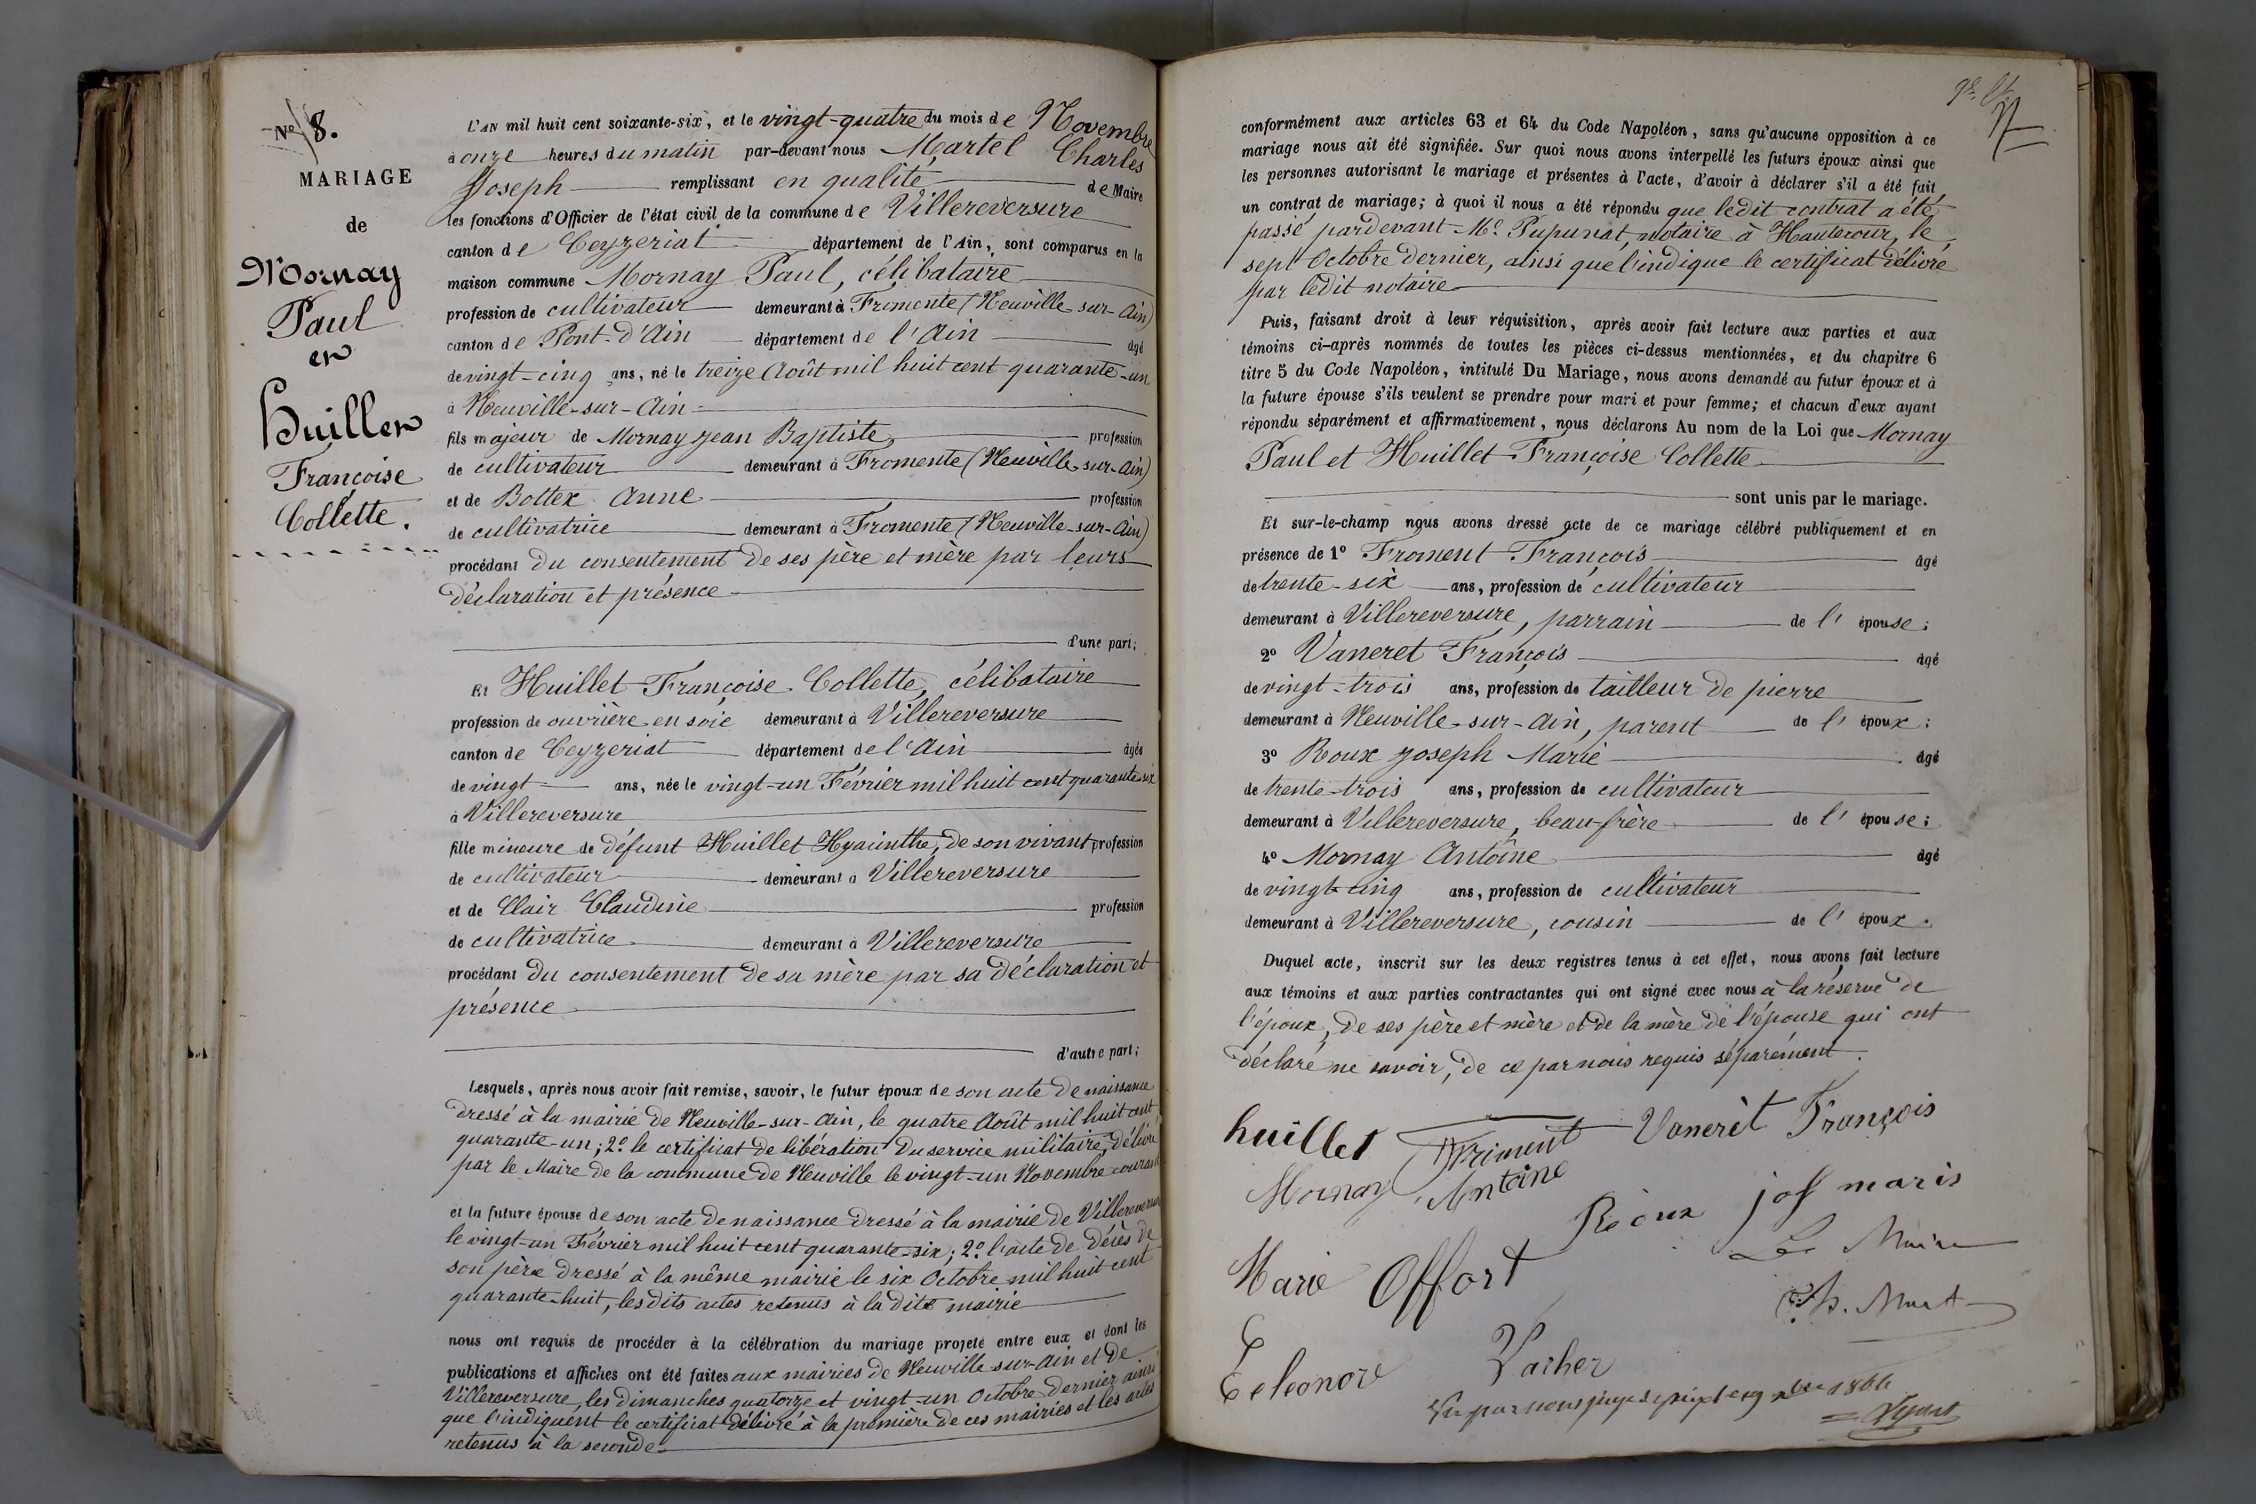 Nº 8.
MARIAGE
de
Mornay
Paul
et
Huillet
Françoise
Collette.
L'AN mil huit cent soixante-six, et le vingt-quatre du mois de Novembre
à onze heures du matin par-devant nous Martel Charles
Joseph remplissant en qualité de Maire
les fonctions d'Officier de l'état civil de la commune de Villereversure
canton de Ceyzeriat département de l'Ain, sont comparus en la
maison commune Mornay Paul, célibataire
profession de cultivateur demeurant à Fromente (Neuville sur-Ain)
canton de Pont-d'Ain département de l'Ain âgé
de vingt-cinq ans, né le treize Août mil huit cent quarante-un
à Neuville-sur-Ain
fils majeur de Mornay Jean Baptiste profession
de cultivateur demeurant à Fromente (Neuville-sur-Ain)
et de Bottex Anne profession
de cultivatrice demeurant à Fromente (Neuville-sur-Ain)
procédant du consentement de ses père et mère par leurs
déclaration et présence
d'une part;
Et Huillet Françoise Collette, célibataire
profession de ouvrière en soie demeurant à Villereversure
canton de Ceyzeriat département de l'Ain âgée
de vingt ans, née le vingt-un Février mil huit cent quarante-six
à Villereversure
fille mineure de défunt Huillet Hyacinthe, de son vivant profession
de cultivateur demeurant à Villereversure
et de Clair Claudine profession
de cultivatrice demeurant à Villereversure
procédant du consentement de sa mère par sa déclaration et
présence
d'autre part;
Lesquels, après nous avoir fait remise, savoir, le futur époux de son acte de naissance
dressé à la mairie de Neuville-sur-Ain, le quatre Août mil huit cent
quarante-un; 2º le certificat de libération du service militaire, délivré
par le Maire de la commune de Neuville le vingt-un Novembre courant
et la future épouse de son acte de naissance dressé à la mairie de Villereversure
le vingt-un Février mil huit cent quarante-six; 2º l'acte de décès de
son père dressé à la même mairie le six Octobre mil huit cent
quarante-huit, lesdits actes retenus à la dite mairie
nous ont requis de procéder à la célébration du mariage projeté entre eux et dont les
publications et affiches ont été faites aux mairies de Neuville sur-Ain et de
Villereversure, les dimanches quatorze et vingt-un Octobre dernier ainsi
que l'indiquent le certificat délivré à la première de ces mairies et les actes
retenus à la seconde
conformément aux articles 63 et 64 du Code Napoléon, sans qu'aucune opposition à ce
mariage nous ait été signifiée. Sur quoi nous avons interpellé les futurs époux ainsi que
les personnes autorisant le mariage et présentes à l'acte, d'avoir à déclarer s'il a été fait
un contrat de mariage; à quoi il nous a été répondu que ledit contrat a été
passé pardevant Me Pupunat, notaire à Hautecour, le
sept Octobre dernier, ainsi que l'indique le certificat délivré
par ledit notaire
Puis, faisant droit à leur réquisition, après avoir fait lecture aux parties et aux
témoins ci-après nommés de toutes les pièces ci-dessus mentionnées, et du chapitre 6
titre 5 du Code Napoléon, intitulé Du Mariage, nous avons demandé au futur époux et à
la future épouse s'ils veulent se prendre pour mari et pour femme; et chacun d'eux ayant
répondu séparément et affirmativement, nous déclarons Au nom de la Loi que Mornay
Paul et Huillet Françoise Collette
sont unis par le mariage.
Et sur-le-champ nous avons dressé acte de ce mariage célébré publiquement et en
présence de 1º Froment François âgé
de trente-six ans, profession de cultivateur
demeurant à Villereversure, parrain de l'épouse;
2º Vaneret François âgé
de vingt-trois ans, profession de tailleur de pierre
demeurant à Neuville-sur-Ain, parent de l'époux;
3º Roux Joseph Marie âgé
de trente-trois ans, profession de cultivateur
demeurant à Villereversure, beau-frère de l'épouse;
4º Mornay Antoine âgé
de vingt-cinq ans, profession de cultivateur
demeurant à Villereversure, cousin de l'époux.
Duquel acte, inscrit sur les deux registres tenus à cet effet, nous avons fait lecture
aux témoins et aux parties contractantes qui ont signé avec nous à la réserve de
l'époux, de ses père et mère et de la mère de l'épouse qui ont
déclaré ne savoir, de ce par nous requis séparément.
huillet Friment Vanerèt François
Mornay Antoine
Roux jos maris
Marie Offort Le Maire
Ch. Mart
Eeleonore Vacher
1866